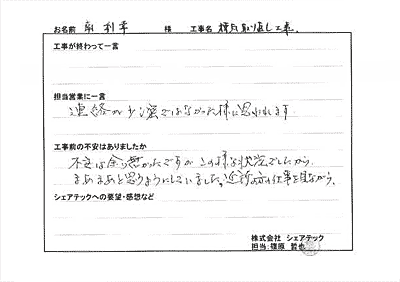 お名前 様 工事名 樋取り返し工事.
工事が終わって一言
担当営業に一言
連絡が少し密ではなかった様に思われます
工事前の不安はありましたか
不安は余り感かったですが この様な状況でしたから
まあまあと思うようにしていました。近所の仕事を見ながら。
シェアテックへの要望・感想など
株式会社 シェアテック
担当:篠原 哲也